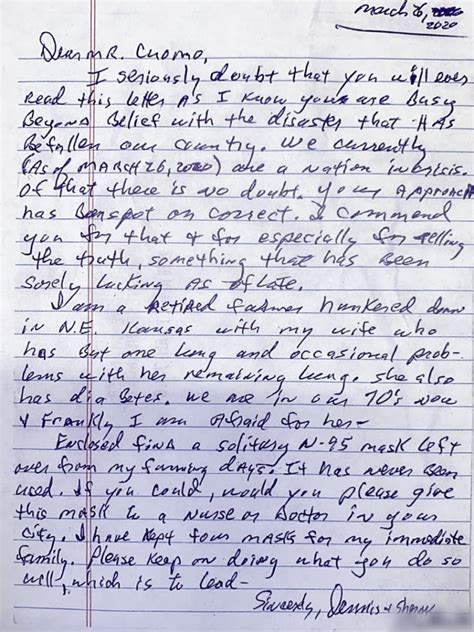 March 26,
2020
Dear Mr. Cuomo,
I seriously doubt that you will ever
Read this letter As I know your are Busy
Beyond Belief with the disaster that HAS
Befallen our country. We currently
(As of MARCH 26, 2020) are a nation in crisis.
Of that there is no doubt. your Approach
has Been spot on correct. I commend
you for that & for especially for telling
the truth, something that has been
sorely lacking As of late.
I am a Retired farmer hunkered down
in N.E. Kansas with my wife who
has But one lung and occasional prob-
lems with her remaining lung. She also
has diaBetes. We are in our 70's now
& Frankly, I am Afraid for her-
Enclosed find a solitary N-95 mask left
over from my farming days. It has never Been
used. If you could, would you please give
this mask to a Nurse or Doctor in your
City. I have kept four masks for my immediate
family. Please keep on doing what you do so
well, which is to lead-
Sincerely, Dennis & Sharon